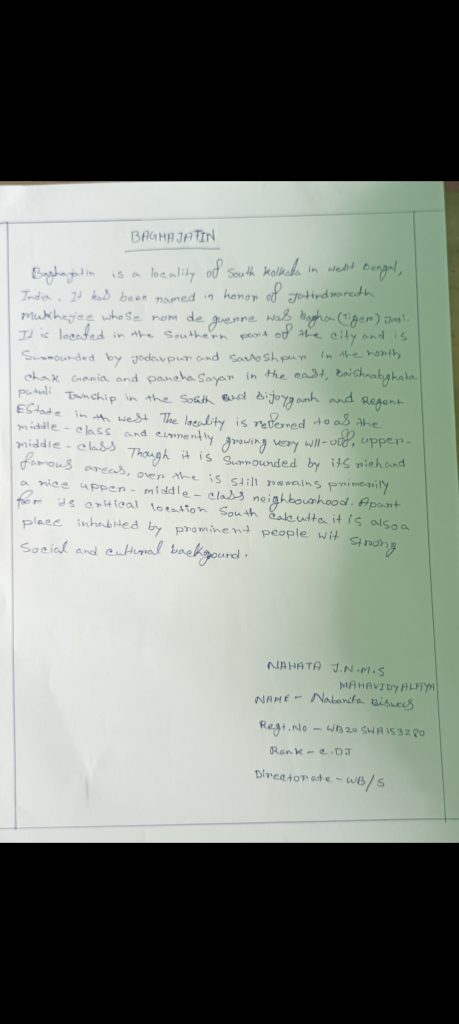 BAGHAJATIN
Baghajatin is a locality of South Kolkata in West Bengal,
India. It has been named in honor of Jatindranath
Mukherjee whose nom de guerre was Bagha (Tiger) Jatin.
It is located in the Southern part of the city and is
Surrounded by Jadavpur and Santoshpur in the north,
Chak Grania and pancha Sayar in the east, Baishnabghata
Patuli Township in the South and Bijoygarh and Regent
EState in th west The locality is referred to as the
middle-class and currently growing very wll-off, upper-
middle-class Though it is surrounded by its rich and
famous areas, over the is still remains primarily
a nice upper-middle-class neighbourhood. Apart
for its critical location South Calcutta it is also a
place inhabited by prominent people wit strong
Social and cultural backgound.
NAHATA J.N.M.S
MAHAVIDYALAYA
NAME - Nabanita Biswas
Regt. No - WB20SWA153280
Rank - CDT
Directorate - WB/S